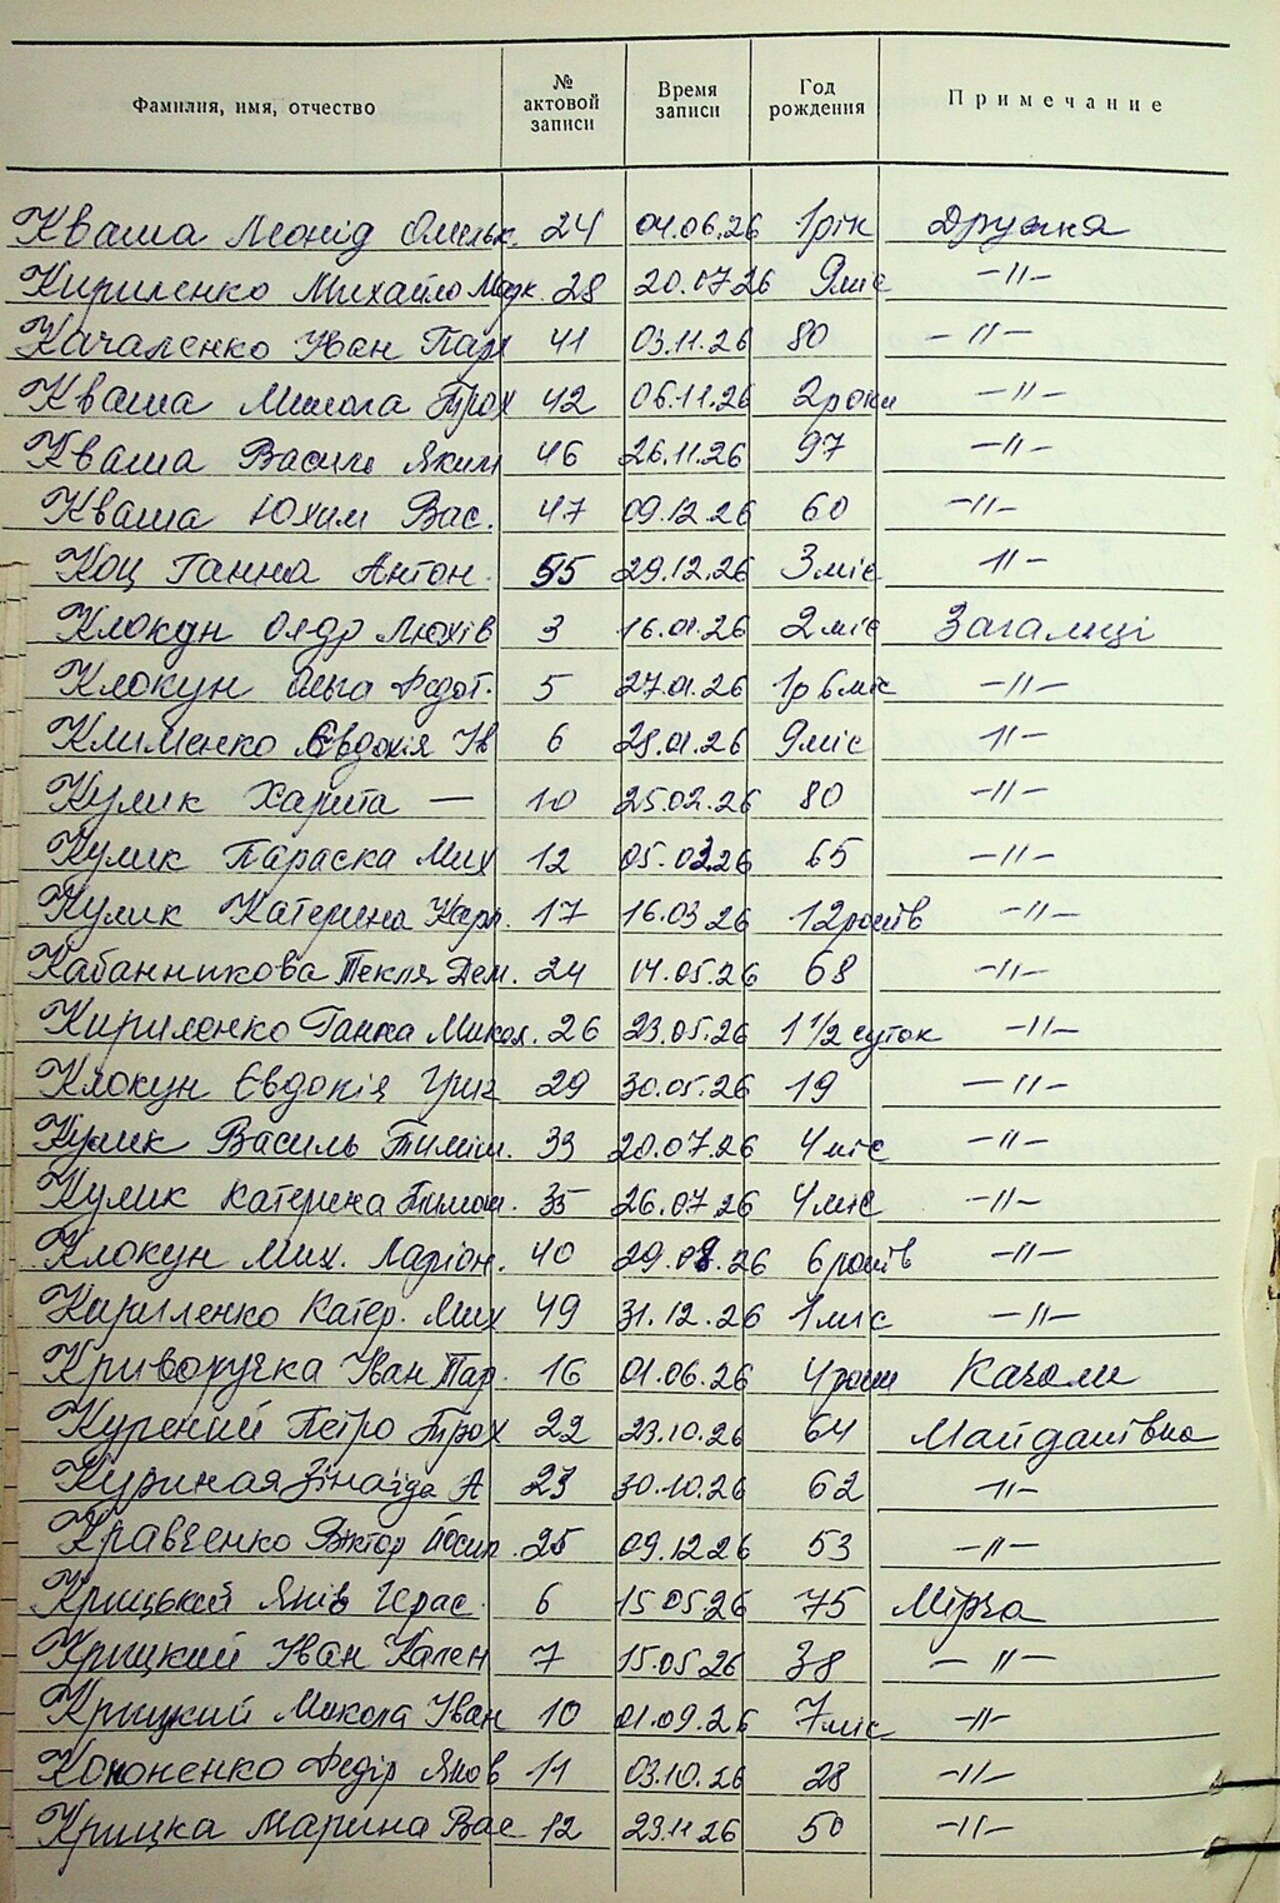 Фамилия, имя, отчество № актовой записи Время записи Год рождения Примечание
Кваша Леонід Омельк. 24 04.06.26 1 рік Дружня
Кириленко Михайло Марк. 28 20.07 26 9 міс -//-
Качаленко Іван Пар 41 03.11.26 80 -//-
Кваша Микола Трох 42 06.11.26 2 роки -//-
Кваша Василь Яким 46 26.11.26 97 -//-
Кваша Юхим Вас. 47 09.12.26 60 -//-
Коц Ганна Антон. 55 29.12.26 3 міс //-
Клокун Олдр 3 16.01.26 2 міс Загальці
Клокун Ольга Федот. 5 27.01.26 1р 6 міс -//-
Клименко Євдокія Ів 6 28.01.26 9 міс //-
Кулик Харита — 10 25.02.26 80 -//-
Кулик Параска Мих 12 05.03.26 65 -//-
Кулик Катерина Карп. 17 16.03 26 12 років -//-
Кабанникова Текля Дем. 24 14.05.26 68 -//-
Кириленко Ганна Микол. 26 23.05.26 1 1/2 суток -//-
Клокун Євдокія Григ 29 30.05.26 19 -//-
Кулик Василь Тиміш. 33 20.07.26 4 міс -//-
Кулик Катерина Тимош. 35 26.07 26 4 міс -//-
Клокун Мих. Ларіон. 40 29.08.26 6 років -//-
Кириленко Катер. Мих 49 31.12.26 1 міс -//-
Криворучка Іван Тар. 16 01.06.26 4 роки Качали
Курений Петро Трох 22 23.10.26 64 Майданівка
Куриная Зінаїда А 23 30.10.26 62 -//-
Кравченко Віктор Йосип. 25 09.12 26 53 -//-
Крицький Яків Герас. 6 15 05.26 75 Мірча
Крицкий Іван Кален 7 15.05 26 38 -//-
Крицкий Микола Іван 10 01.09.26 7 міс -//-
Кононенко Федір Яков 11 03.10.26 28 -//-
Крицка Марина Вас 12 23.11 26 50 -//-